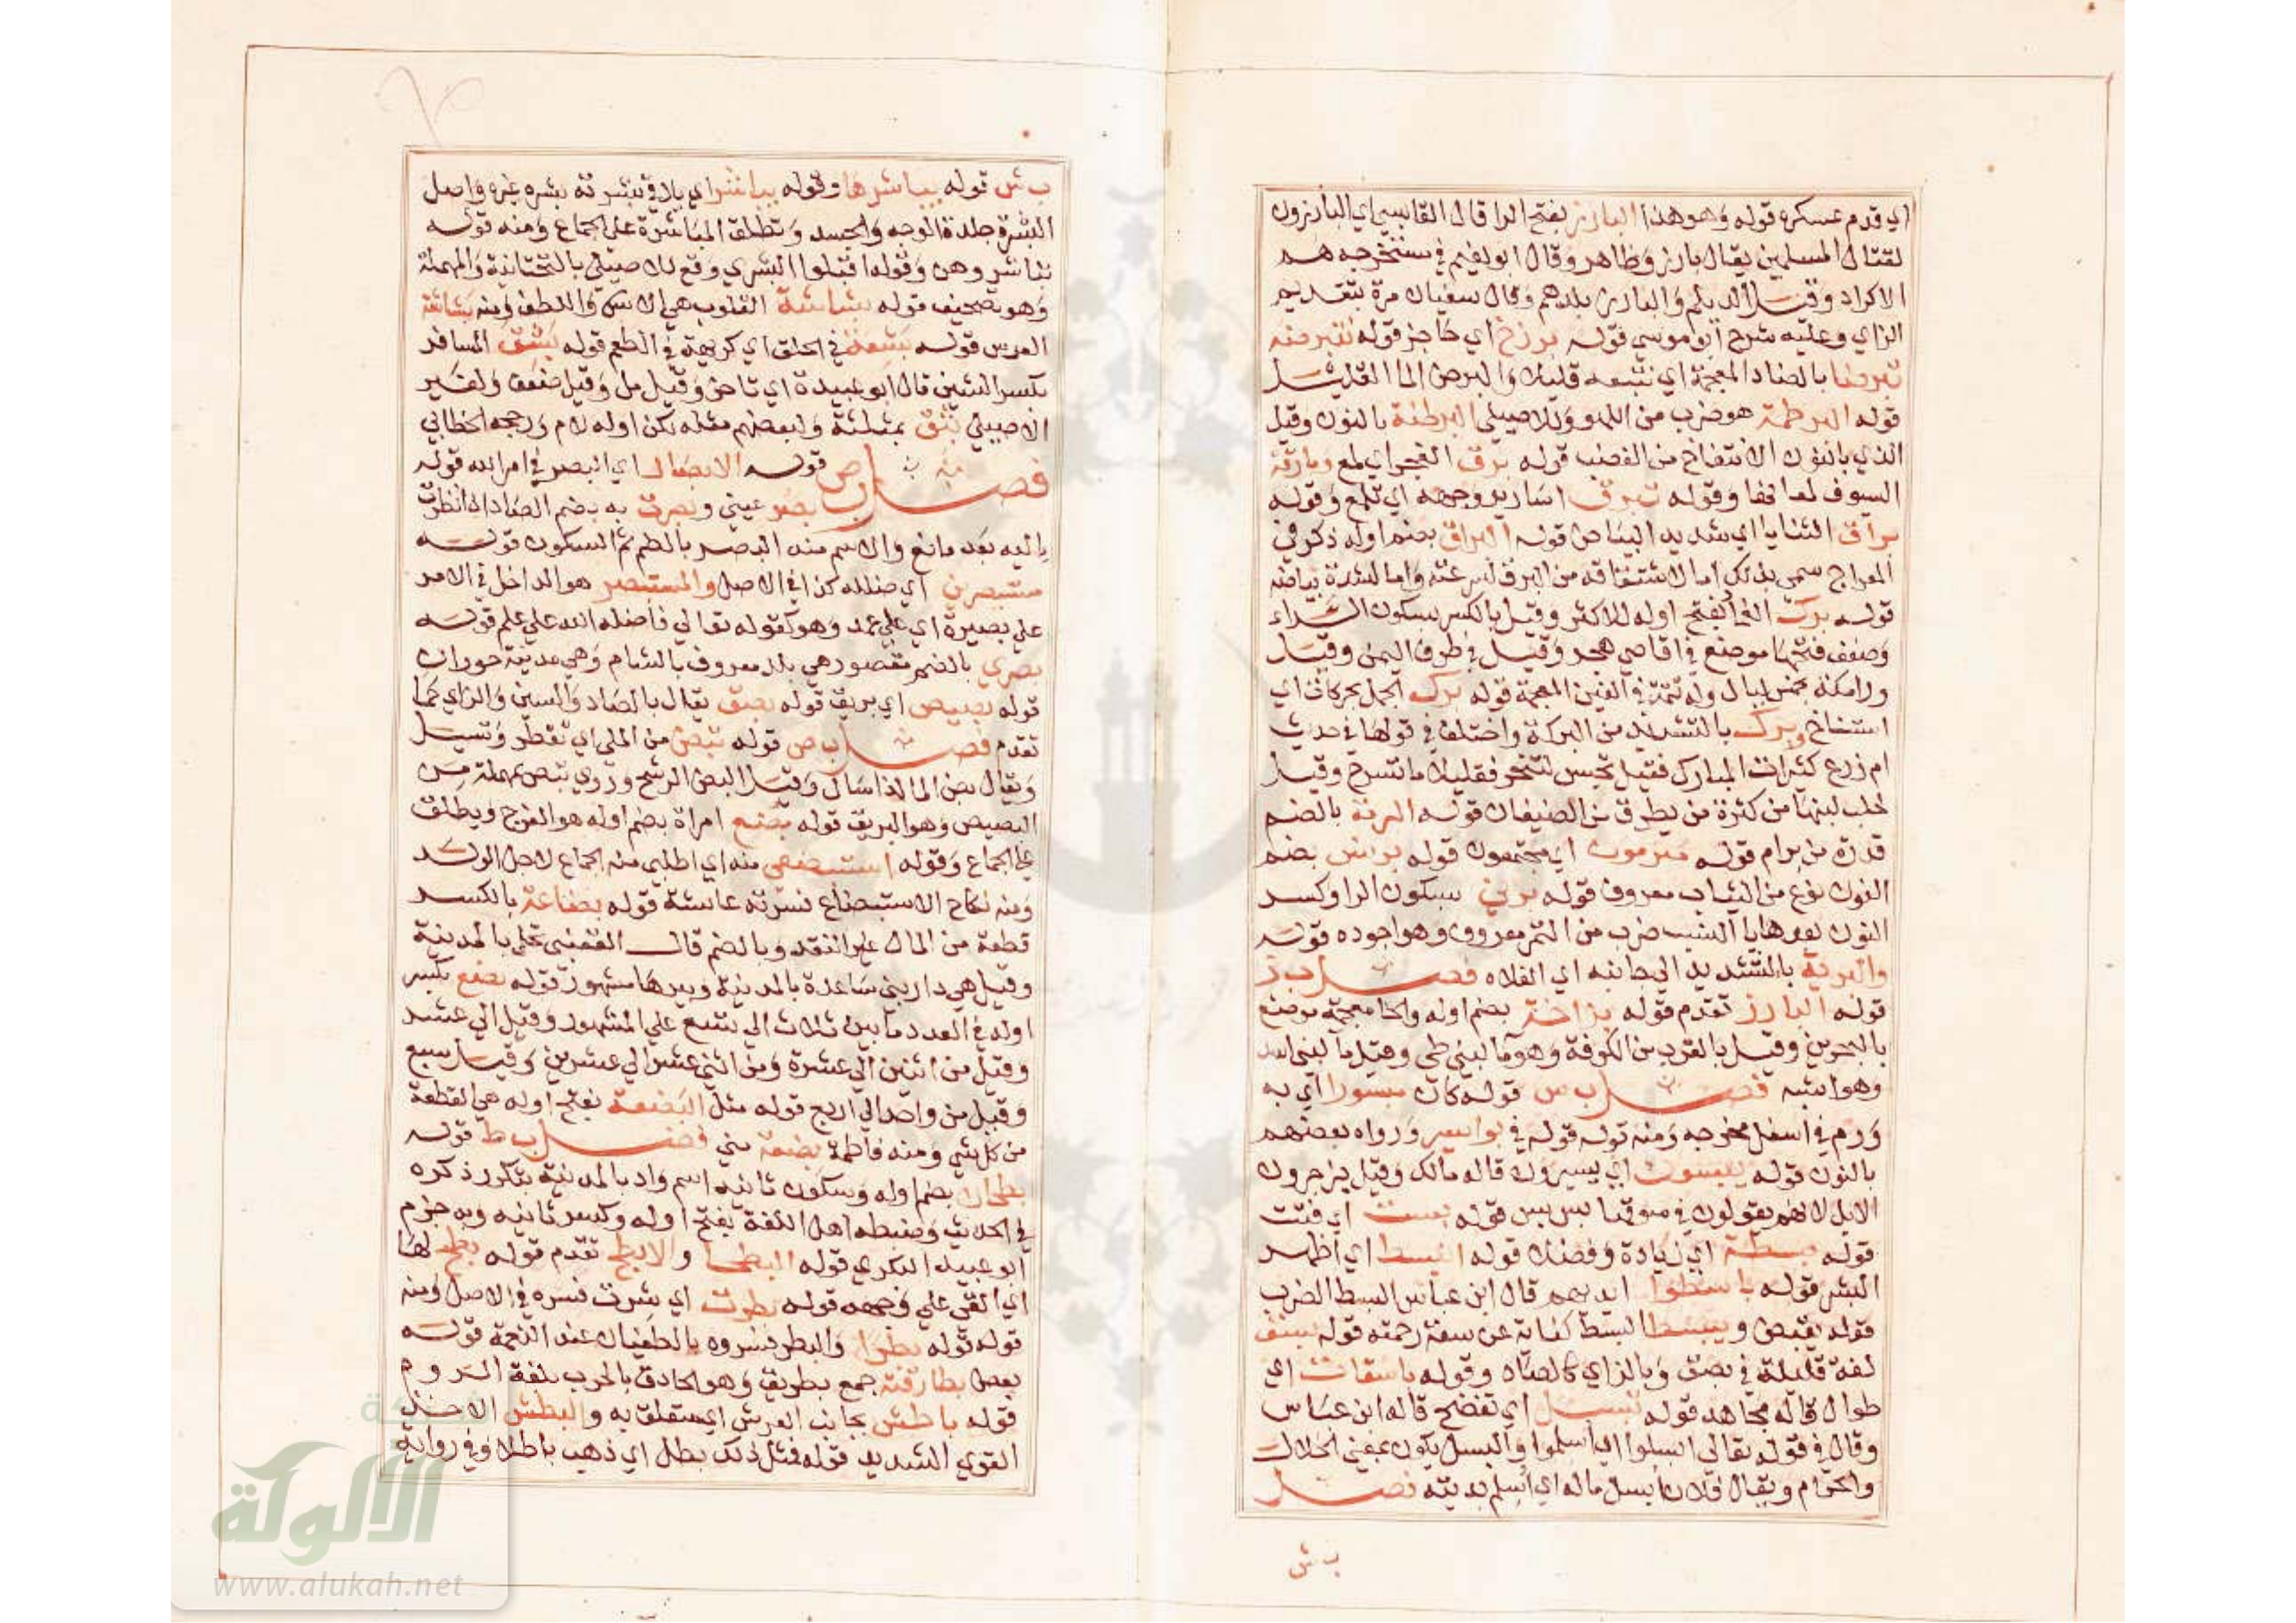 اي قدم عسكره قوله وهو هذا البارز بفتح الرا قال القابسي اي البارزون
لقتال المسلمين يقال بارز وظاهر وقال ابو نعيم في مستخرجه هم
الاكراد وقيل الديلم والبارز بلدهم وقال سفيان مرة بتقديم
الزاي وعليه شرح ابو موسي قوله برزخ اي حاجز قوله تتبرضه
تبرضا بالضاد المعجمة اي تتبعه قليلا والبرض الما القليل
قوله البرطمة هو ضرب من اللهو وللاصيلي البرطنة بالنون وقيل
الذي بالنون الانتفاخ من الغضب قوله برق الفجر اي لمع وبارقة
السيوف لمعانها وقوله تبرق اسارير وجهه اي تلمع وقوله
براق الثنايا اي شديد البياض قوله البراق بضم اوله ذكر في
المعراج سمي بذلك اما لاشتقاقه من البرق لسرعته واما لشدة بياضه
قوله برك الغماد بفتح اوله للاكثر وقيل بالكسر بسكون الراء
وضعف فتحها موضع في اقاصي هجر وقيل في طرف اليمن وقيل
ورا مكة بخمس ليال وله تتمة في الغين المعجمة قوله برك الجمل بحركات اي
استناخ وبرك بالتشديد من البركة واختلف في قولها في حديث
ام زرع كثيرات المبارك فقيل تحبس لتنحر فقليلا ما تسرح وقيل
تحلب لبنها من كثرة من يطرق من الضيفان قوله البرمة بالضم
قدرة من برام قوله متبرمون اي مجتمعون قوله برانس بضم
النون نوع من الثياب معروف قوله برني بسكون الرا وكسر
النون بعدها يا النسب ضرب من التمر معروف وهو اجوده قوله
والبرية بالتشديد الي جانبه اي الفلاه فصل ب ز
قوله البارز تقدم قوله بزاخة بضم اوله والخا معجمة موضع
بالبحرين وقيل بالقرب من الكوفة وهو ما لبني طي وقيل ما لبني اسد
وهو اشبه فصل ب س قوله كان مبسورا اي به
ورم في اسفل مخرجه ومنه قوله في بواسير ورواه بعضهم
بالنون قوله يبسون اي يسيرون قاله مالك وقيل يزجرون
الابل لانهم يقولون في سوقها بس بس قوله بست اي فتتت
قوله بسطة اي زيادة وفضلا قوله انبسط اي اظهر
البشر قوله باسطوا ايديهم قال ابن عباس البسط الضرب
قوله يقبض ويبسط البسط كناية عن سعة رحمته قوله بسق
لغة قليلة في بصق وبالزاي كالصاد وقوله باسقات اي
طوال قاله مجاهد قوله تبسل اي تفضح قاله ابن عباس
وقال في قوله تعالى ابسلوا اي اسلموا والبسل يكون بمعني الحلال
والحرام ويقال فلان ابسل ماله اي اسلم بديته فصل
ب ش
ب ش قوله يباشرها وقوله يباشر اي يلاقي بشرته بشره غيره واصل
البشرة جلدة الوجه والجسد وتطلق المباشرة علي الجماع ومنه قوله
تباشروهن وقوله اقبلوا البشري وقع للاصيلي بالتحتانية والمهملة
وهو تصحيف قوله بشاشة القلوب هي الانس واللطف ومنه بشاشة
العرس قوله بشعة في الحلق اي كريهة في الطعم قوله بشق المسافر
بكسر الشين قال ابو عبيدة اي تاخر وقيل مل وقيل ضعف ولغير
الاصيلي بثق بمثلثة ولبعضهم مثله لكن اوله لام ورجحه الخطابي
فصل ب ص قوله الابصار اي البصر في امر الله قوله
بصر عيني وبصرت به بضم الصاد اي نظرت
اليه بعد مانع والاسم منه البصر بالضم ثم السكون قوله
مستبصرين اي ضلله كذا في الاصل والمستبصر هو الداخل في الامر
علي بصيرة اي علي عمد وهو كقوله تعالي فاضله الله علي علم قوله
بصري بالضم مقصور هي بلد معروف بالشام وهي مدينة حوران
قوله بصيص اي بريق قوله بصق يقال بالصاد والسين والزاي كما
تقدم فصل ب ض قوله تبض من الملء اي تقطر وتسيل
ويقال بض الما اذا سال وقيل البض الرشح وروي تبص بمهملة من
البصيص وهو البريق قوله بضع امراة بضم اوله هو الفرج ويطلق
علي الجماع وقوله استبضعي منه اي اطلبي منه الجماع لاجل الولد
ومنه نكاح الاستبضاع فسرته عائشة قوله بضاعة بالكسر
قطعة من المال غير النقد وبالضم قال القعنبي نخل بالمدينة
وقيل هي دار بني ساعدة بالمدينة وبيرها مشهور قوله بضع بكسر
اوله في العدد ما بين ثلاث الي تسع علي المشهور وقيل الي عشر
وقيل من اثنين الي عشرة ومن اثني عشر الي عشرين وقيل سبع
وقيل من واحد الي اربع قوله مثل البضعة بفتح اوله هي القطعة
من كل شي ومنه فاطمة بضعة مني فصل ب ط قوله
بطحان بضم اوله وسكون ثانيه اسم واد بالمدينة يتكرر ذكره
في الحديث وضبطه اهل اللغة بفتح اوله وكسر ثانيه وبه جزم
ابو عبيد البكري قوله البطحا والابطح تقدم قوله بطح لها
اي القي علي وجهه قوله بطرت اي بشرت فسره في الاصل ومنه
قوله قوله بطرا والبطر فسروه بالطغيان عند النعمة قوله
بعض بطارقته جمع بطريق وهو الحاذق بالحرب بلغة الروم
قوله باطش بجانب العرش اي متعلق به والبطش الاخذ
القوي الشديد قوله فمثل ذلك بطل اي ذهب باطلا وفي رواية
شبكة
الألوكة
www.alukah.net